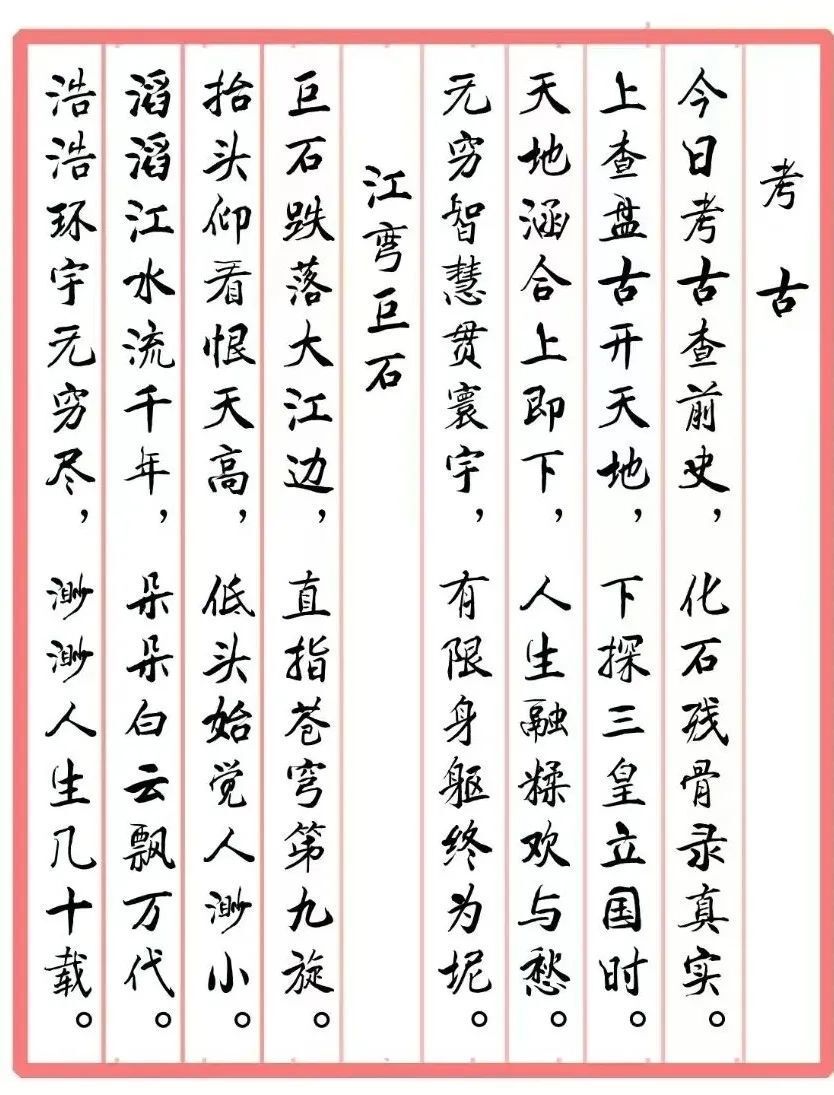 考古
今日考古查前史，化石残骨录真实。
上查盘古开天地，下探三皇立国时。
天地涵合上即下，人生融糅欢与愁。
无穷智慧贯寰宇，有限身躯终为坭。
江弯巨石
巨石跌落大江边，直指苍穹第九旋。
抬头仰看恨天高，低头始觉人渺小。
滔滔江水流千年，朵朵白云飘万代。
浩浩环宇无穷尽，渺渺人生几十载。